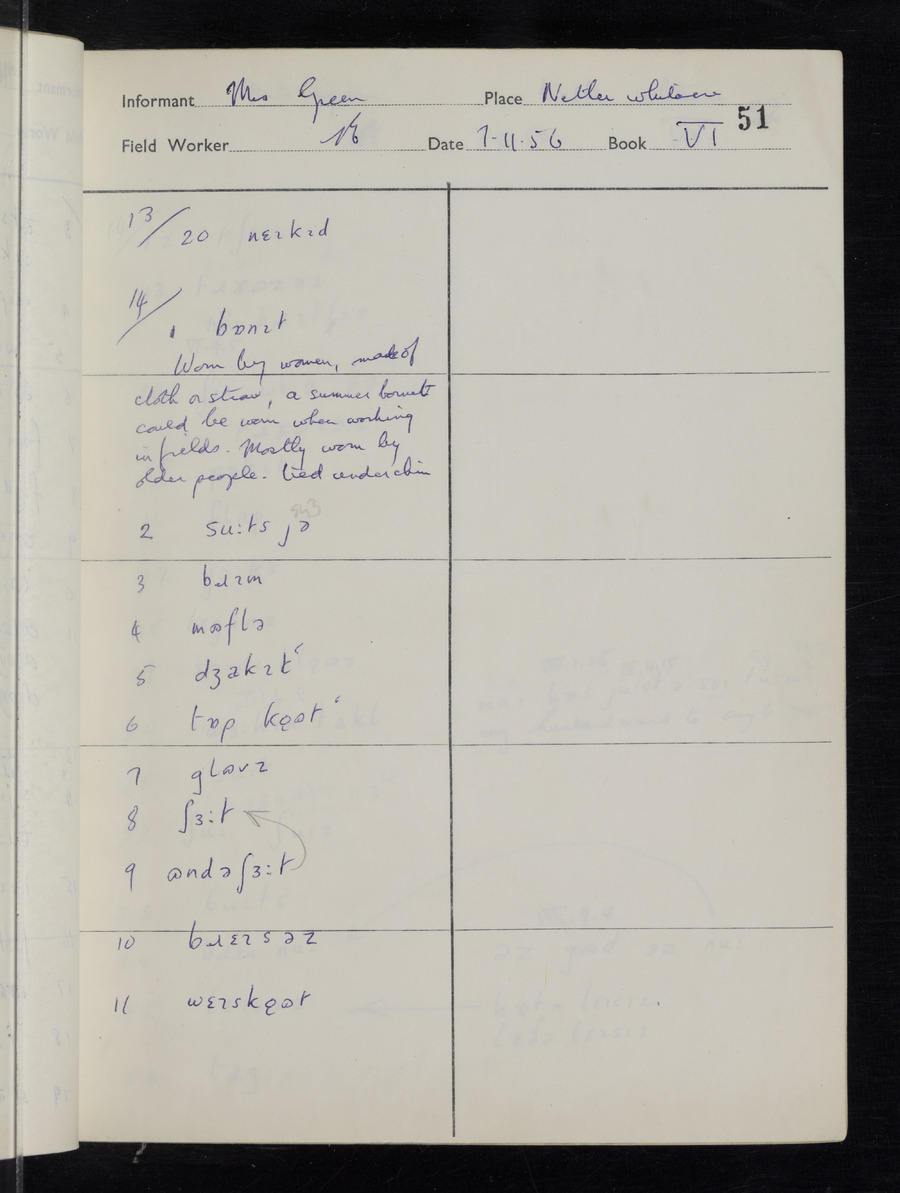 Informant Mrs Green Place Nether whitacre
51
Field Worker Date 7-11-56 Book VI
13/ 20 nɛɪkɪd
14/ 1 bɒnɪt
Worn by women, made of
cloth or straw, a summer bonnett
could be worn when working
in fields. Mostly worn by
older people. tied under chin
2 su:ts jə
3 bɹɪm
4 mɷflə
5 dʒakɪt
6 tɒp kɷt
7 glɷvz
8 ʃɜ:t
9 ɷndəʃɜ:t
10 bɹɛɪsəz
11 wɛɪskɷt